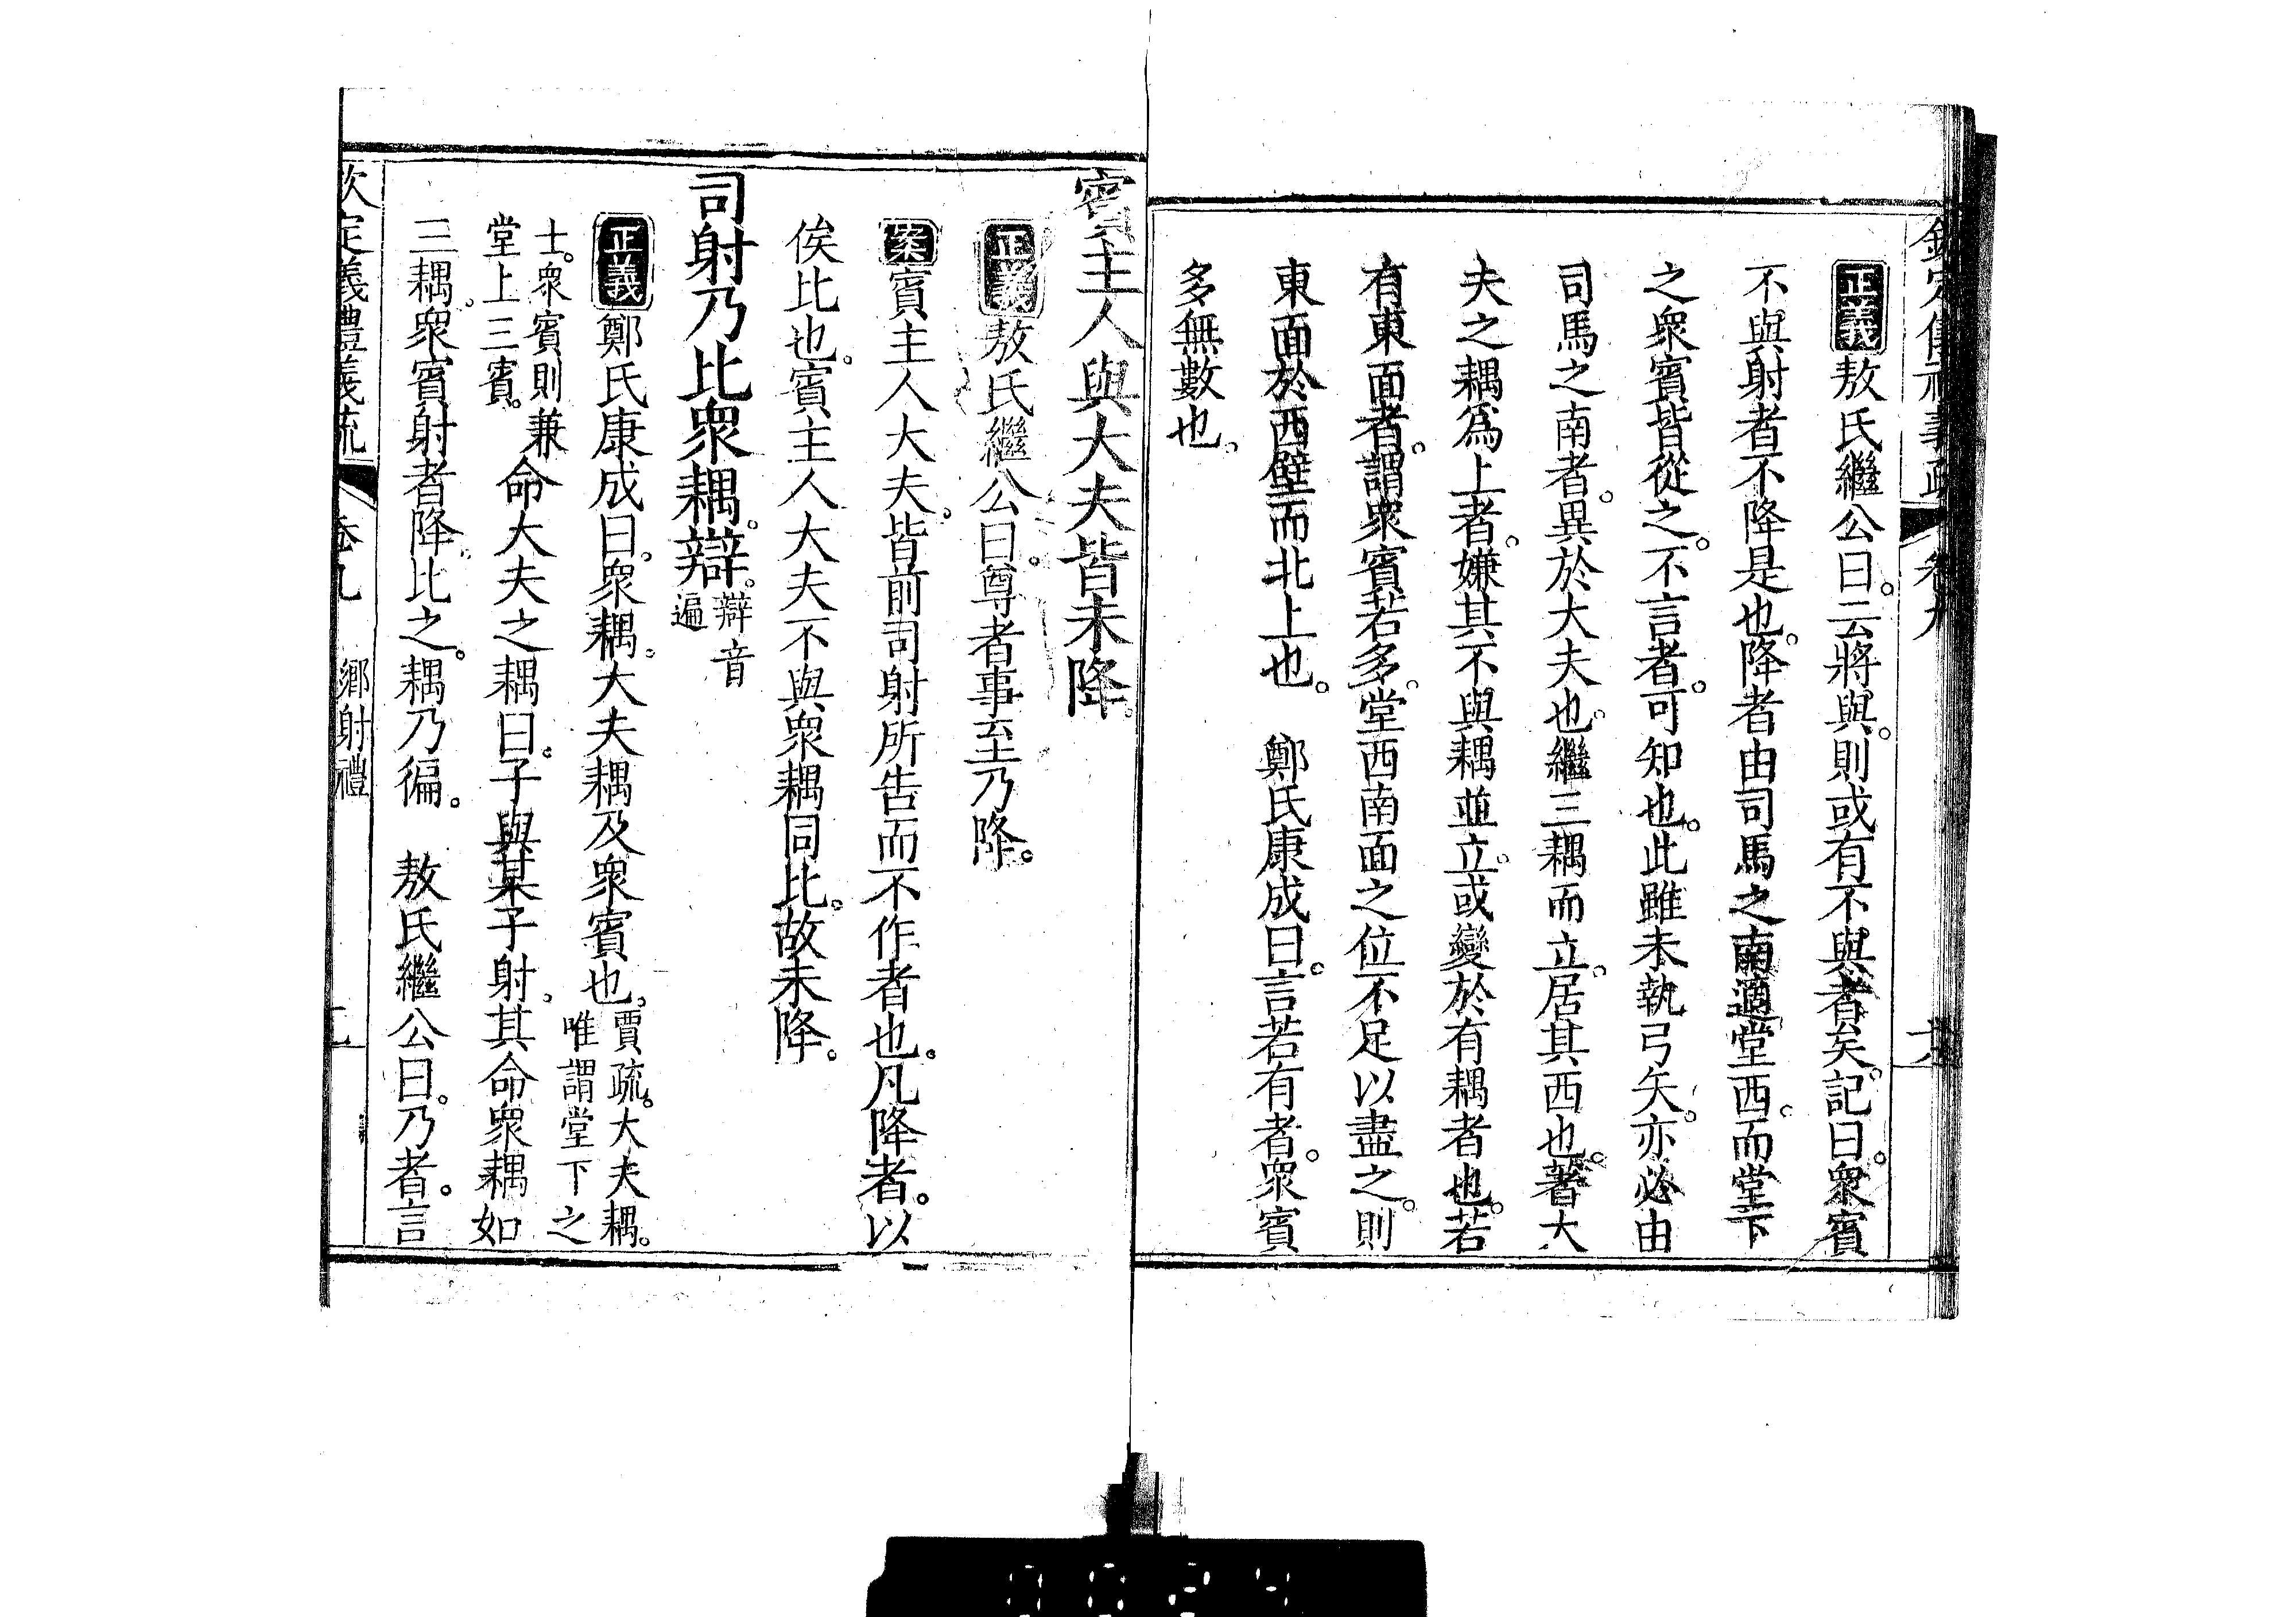 正義敖氏繼公曰。云將與。則或有不與者矣。記曰。衆賓
不與射者不降是也。降者由司馬之南適堂西。而堂下
之衆賓皆從之。不言者。可知也。此雖未執弓矢。亦必由
司馬之南者。異於大夫也。繼三耦而立。居其西也。著大
夫之耦爲上者。嫌其不與耦並立。或變於有耦者也。若
有東面者。謂衆賓若多。堂西南面之位不足以盡之。則
東面於西壁而北上也。 鄭氏康成曰。言若有者。衆賓
多無數也。
賓主人與大夫皆未降。
正義敖氏繼公曰。尊者事至乃降。
案賓主人大夫。皆前司射所告而不作者也。凡降者。以
俟比也。賓主人大夫不與衆耦同比。故未降。
司射乃比衆耦。辯。辯音
遍
正義鄭氏康成曰。衆耦。大夫耦及衆賓也。賈疏。大夫耦。
唯謂堂下之
士。衆賓則兼
堂上三賓。
命大夫之耦曰。子與某子射。其命衆耦如
三耦。衆賓射者降。比之。耦乃徧。 敖氏繼公曰。乃者。言
鄉射禮